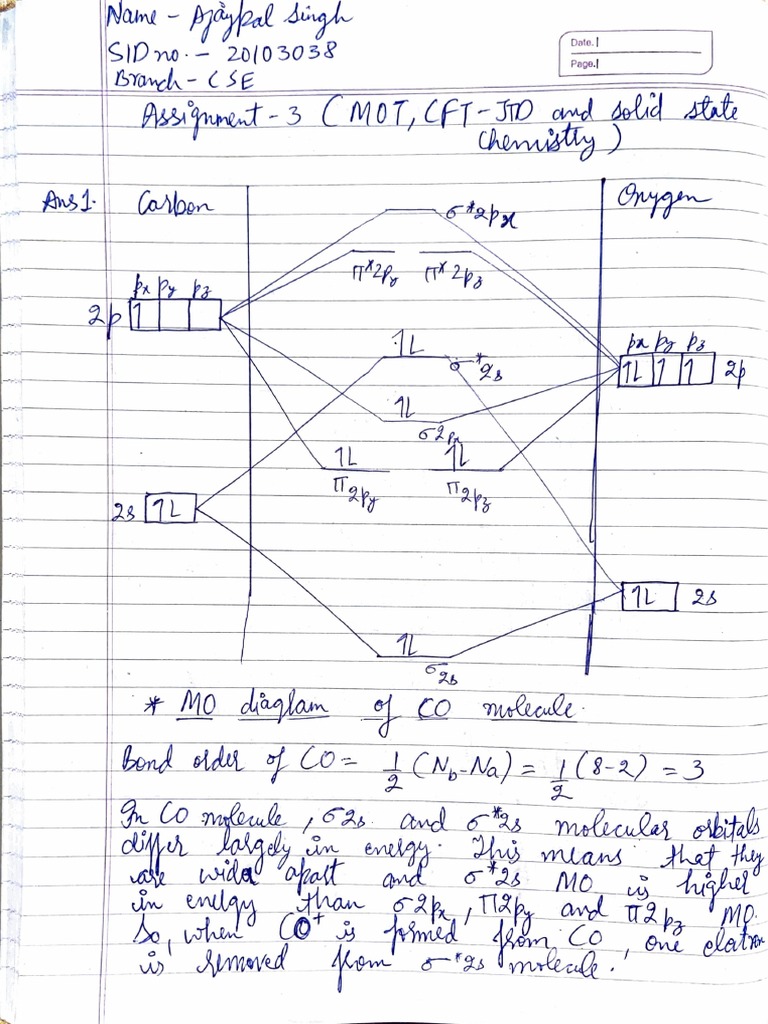 Name - Ajaypal Singh
SID no. - 20103038
Branch - CSE
Date.
Page.
Assignment - 3 (MOT, CFT-JTD and solid state
chemistry)
Ans 1. Carbon
Oxygen
σ*2px
π*2py π*2pz
px py pz
2p 1
1L
σ*2s
px py pz
1L 1 1 2p
1L
σ2px
1L 1L
π2py π2pz
2s 1L
1L 2s
1L
σ2s
* MO diagram of CO molecule.
Bond order of CO = 1/2 (Nb-Na) = 1/2 (8-2) = 3
In CO molecule, σ2s and σ*2s molecular orbitals
differ largely in energy. This means that they
are wide apart and σ*2s MO is higher
in energy than σ2px, π2py and π2pz MO.
So, when CO+ is formed from CO, one electron
is removed from σ*2s molecule.